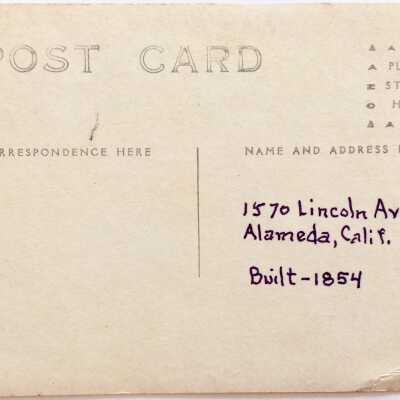 POST CARD
PL
ST
H
RRESPONDENCE HERE
NAME AND ADDRESS
1570 Lincoln Av
Alameda, Calif.
Built-1854